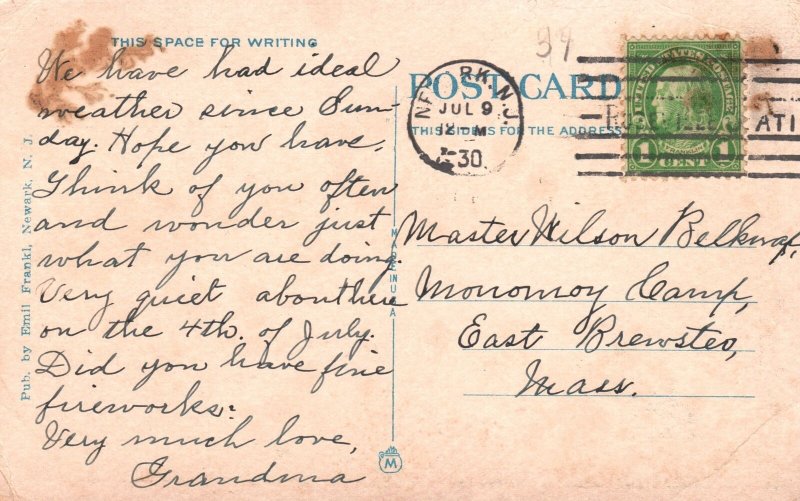 THIS SPACE FOR WRITING
We have had ideal
weather since Sun-
day. Hope you have.
Think of you often
and wonder just
what you are doing.
Very quiet about here
on the 4th. of July.
Did you have fine
fireworks?
Very much love,
Grandma
Pub. by Emil Frankl, Newark, N. J.
MADE IN U.S.A
M
39
POST CARD
THIS SIDE IS FOR THE ADDRESS
NEWARK, N.J.
JUL 9
12 M
30
UNITED STATES POSTAGE
1 CENT 1
ATI
Master Wilson
Monomoy Camp,
East Brewster,
Mass.